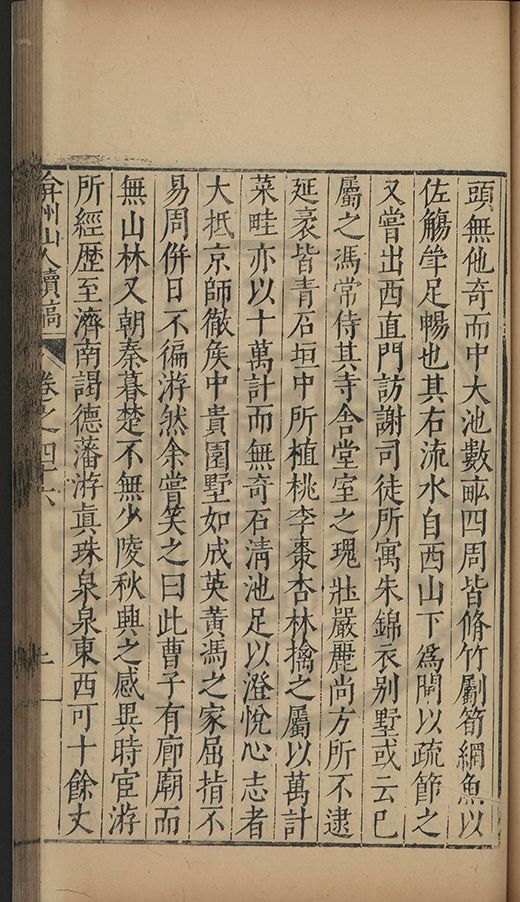 頭無他奇而中大池數畝四周皆脩竹劚筍網魚以
佐觴𫝑足暢也其右流水自西山下為閘以疏節之
又嘗出西直門訪謝司徒所寓朱錦衣别墅或云已
屬之馮常侍其寺舍堂室之瑰壯嚴麗尚方所不逮
延袤皆青石垣中所植桃李棗杏林擒之屬以萬計
菜畦亦以十萬計而無奇石清池足以澄悅心志者
大抵京師徹矦中貴園墅如成英黄馮之家屈指不
易周併日不徧游然余嘗笑之曰此曹子有廊廟而
無山林又朝秦暮楚不無少陵秋興之感異時宦游
所經歴至濟南謁德藩游真珠泉泉東西可十餘丈
弇州山人續稿 卷之四十六